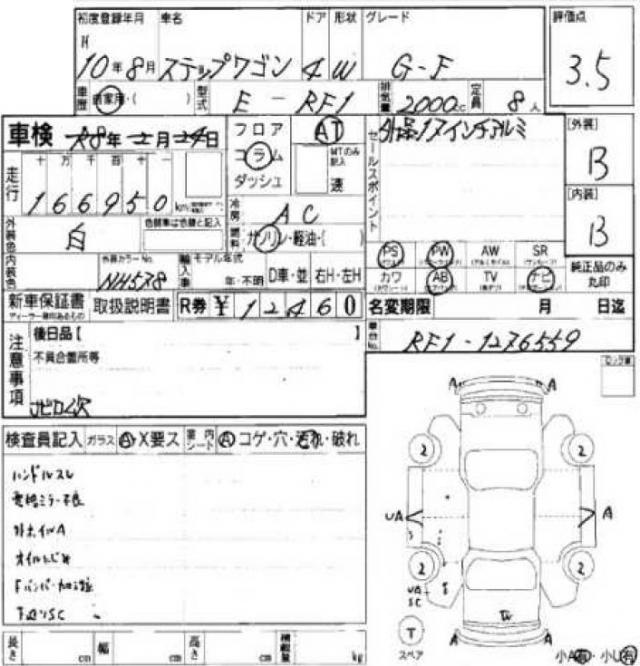 初度登録年月 車名 ドア 形状 グレード 評価点
H
10年8月 ステップワゴン 4 W G-F 3.5
車歴 自家用・( ) 型式 E-RF1 排気量 2000cc 定員 8人
車検 R8年2月24日 フロア コラム ダッシュ AT MTのみ記入 速
セールスポイント
[外装]
B
[内装]
B
走行 十万千百十一
166950km
冷房 AC
燃料 ガソリン・軽油・( )
外装色 白 色替車は色替と記入
内装色 外装カラーNo. NH578 輸入車 モデル年式 年・不明 D車・並 右H・左H
PS PW AW SR
カワ AB TV ナビ
純正品のみ丸印
新車保証書 取扱説明書 R券 ¥12460 名変期限 月 日迄
ディーラー捺印あるもの
車台No. RF1-1276559
注意事項
後日品[ ]
不具合箇所等
検査員記入 ガラス A・X要ス 室内シート A コゲ・穴・汚れ・破れ
ハンドルスレ
電格ミラー不良
外ホイルA
オイルにじみ
下廻りSC
A A
2 2
UA A
2 2
UA
SC
T
スペア
A A
長さ cm 幅 cm 高さ cm 積載量 kg
小A有・小U有